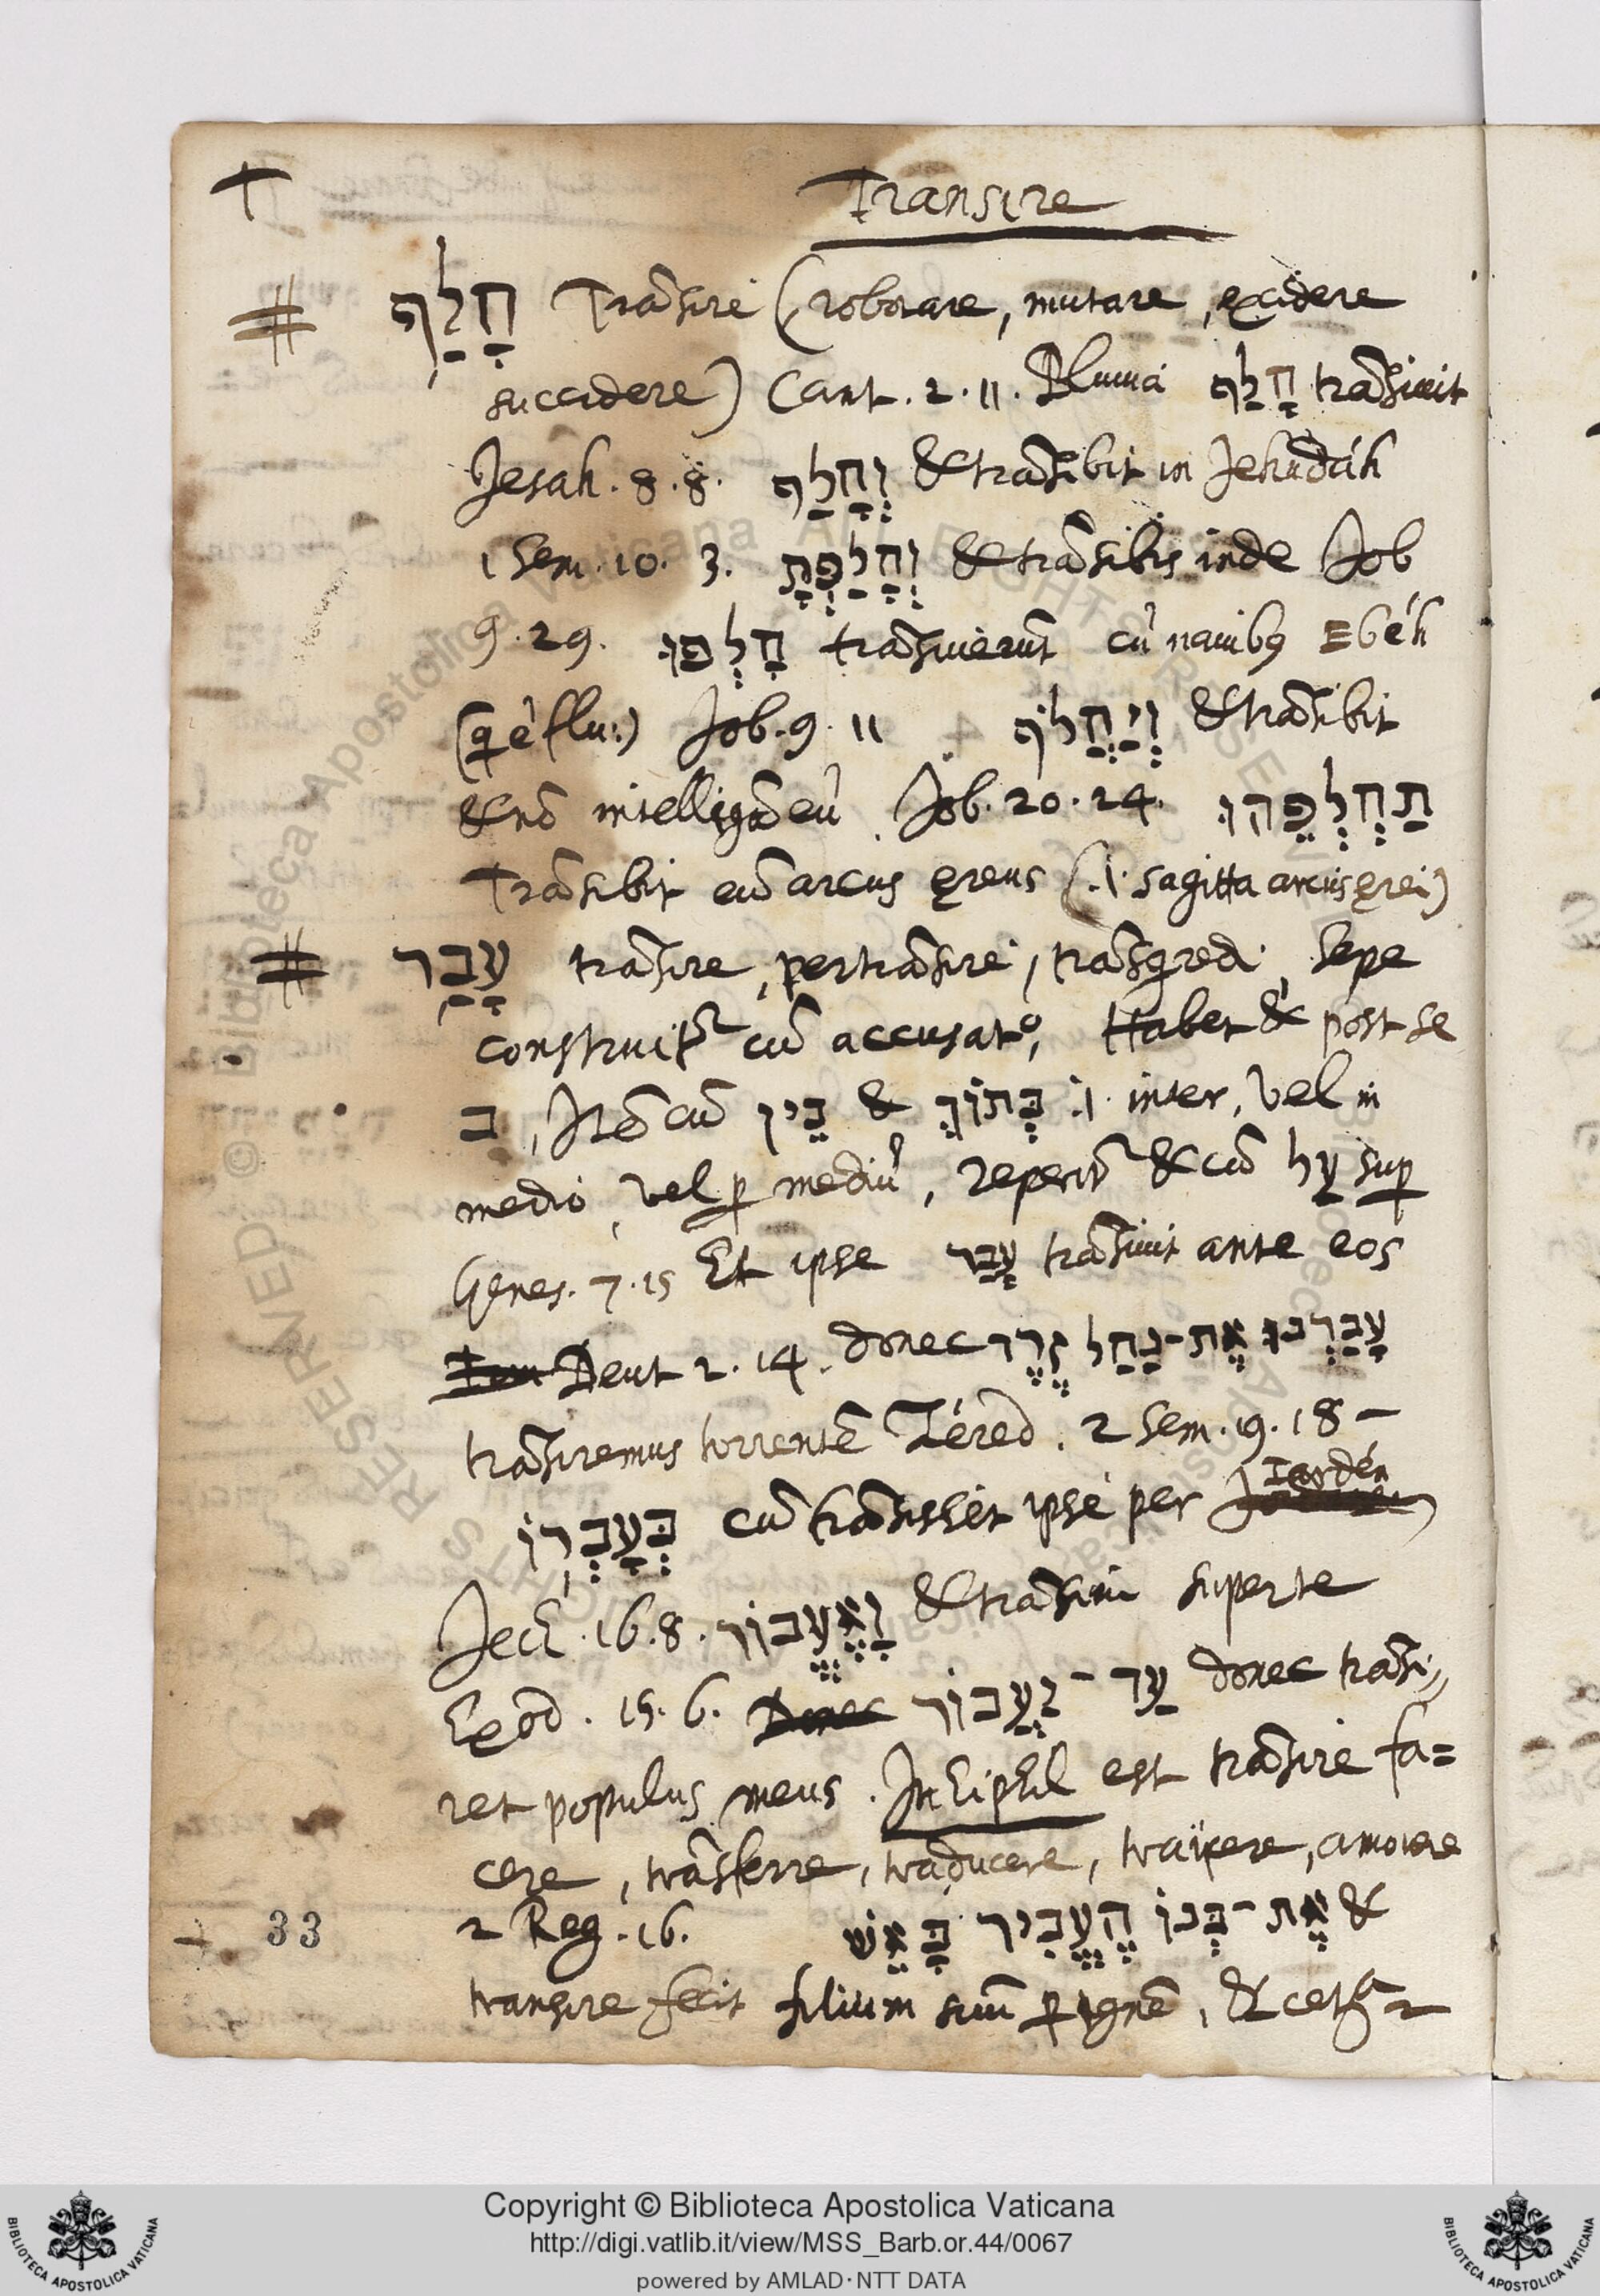 T
Transire
חָלַף Trãsire (roborare, mutare, excidere
succidere) Cant. 2. 11. Pluuia חָלַף trãsiuit
Jesah. 8. 8. וְחָלַף & trãsibit in Jehudáh
1 Sem. 10. 3. וְחָלַפְתָּ & trãsibis inde Job
9. 29. חָלְפוּ trãsiuerũt cũ nauibꝰ Ebéh
Job. 9. 11 וְיַחֲלֹף & trãsibit
& nõ intelligã eũ. Job. 20. 24. תַחְלְפֵהוּ
Trãsibit eũ arcus ęreus (.i. sagitta arcus ęrei)
עָבַר trãsire, pertrãsire, trãsgredi, Sepe
construitr cũ accusato, Habet & post se
ב, Itẽ cũ בֵּין & בְּתוֹךְ .i. inter, vel in
medio, vel ꝑ mediũ, reperitr & cũ עַל suꝑ
Genes. 7. 15 Et ipse עָבַר trãsiuit ante eos
Deut 2. 14. donec עָבַרְנוּ אֶת-נַחַל זֶרֶד
trãsiremus torrentẽ Zéred. 2 Sem. 19. 18 -
בְּעָבְרוֹ cũ trãsisset ipse per Iardén
Jecħ. 16. 8. וָאֶעֱבוֹר & trãsiui super te
Exod. 15. 6. Donec עַד-יַעֲבוֹר donec trãsi⸗
ret populus meus. In Hiphil est trãsire fa=
cere, trãsferre, traducere, traijcere, amouere
33 2 Reg. 16. & אֶת-בְּנוֹ הֶעֱבִיר בָּאֵשׁ
transire fecit filium suũ ꝑ ignẽ, & cet
Copyright © Biblioteca Apostolica Vaticana
http://digi.vatlib.it/view/MSS_Barb.or.44/0067
powered by AMLAD·NTT DATA
BIBLIOTECA APOSTOLICA VATICANA
BIBLIOTECA APOSTOLICA VATICANA